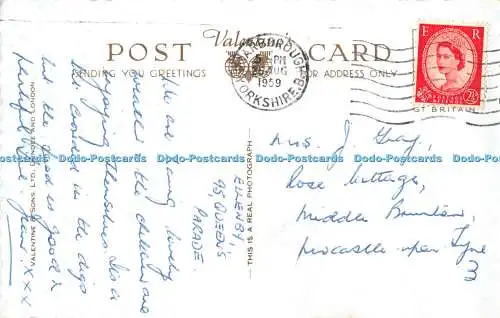 Valentine's
POST CARD
SENDING YOU GREETINGS
FOR ADDRESS ONLY
SCARBOROUGH
5 PM
AUG
1959
YORKSHIRE
E R
2½
GT BRITAIN
ELLENBY,
95, QUEEN'S
PARADE.
We are having lovely
weather & the children are
enjoying themselves. It's a
bit crowded in the digs
but the food is good &
Jean. xxx
Mrs J Gray,
Rose Cottage,
Middle Brunton,
Newcastle upon Tyne
3
THIS IS A REAL PHOTOGRAPH
VALENTINE & SONS, LTD., DUNDEE AND LONDON
Dodo-Postcards Dodo-Postcards Dodo-Postcards Dodo-Postcards Dodo-Postcards Dodo-Postcards